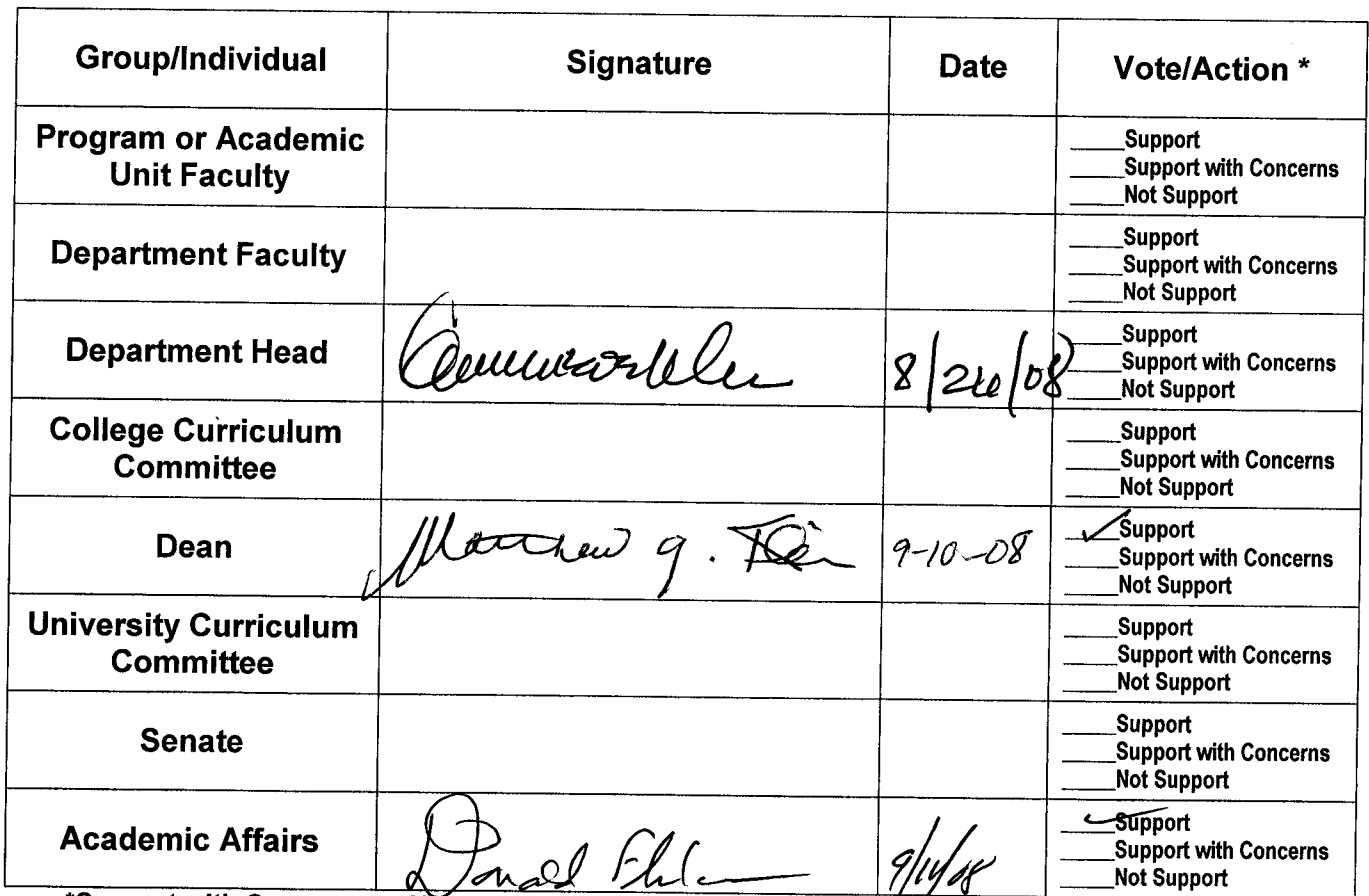 Group/Individual Signature Date Vote/Action *
Program or Academic Unit Faculty
____Support
____Support with Concerns
____Not Support
Department Faculty
____Support
____Support with Concerns
____Not Support
Department Head 8/26/08
____Support
____Support with Concerns
____Not Support
College Curriculum Committee
____Support
____Support with Concerns
____Not Support
Dean Matthew 9-10-08
✓Support
____Support with Concerns
____Not Support
University Curriculum Committee
____Support
____Support with Concerns
____Not Support
Senate
____Support
____Support with Concerns
____Not Support
Academic Affairs Donald
✓Support
____Support with Concerns
____Not Support